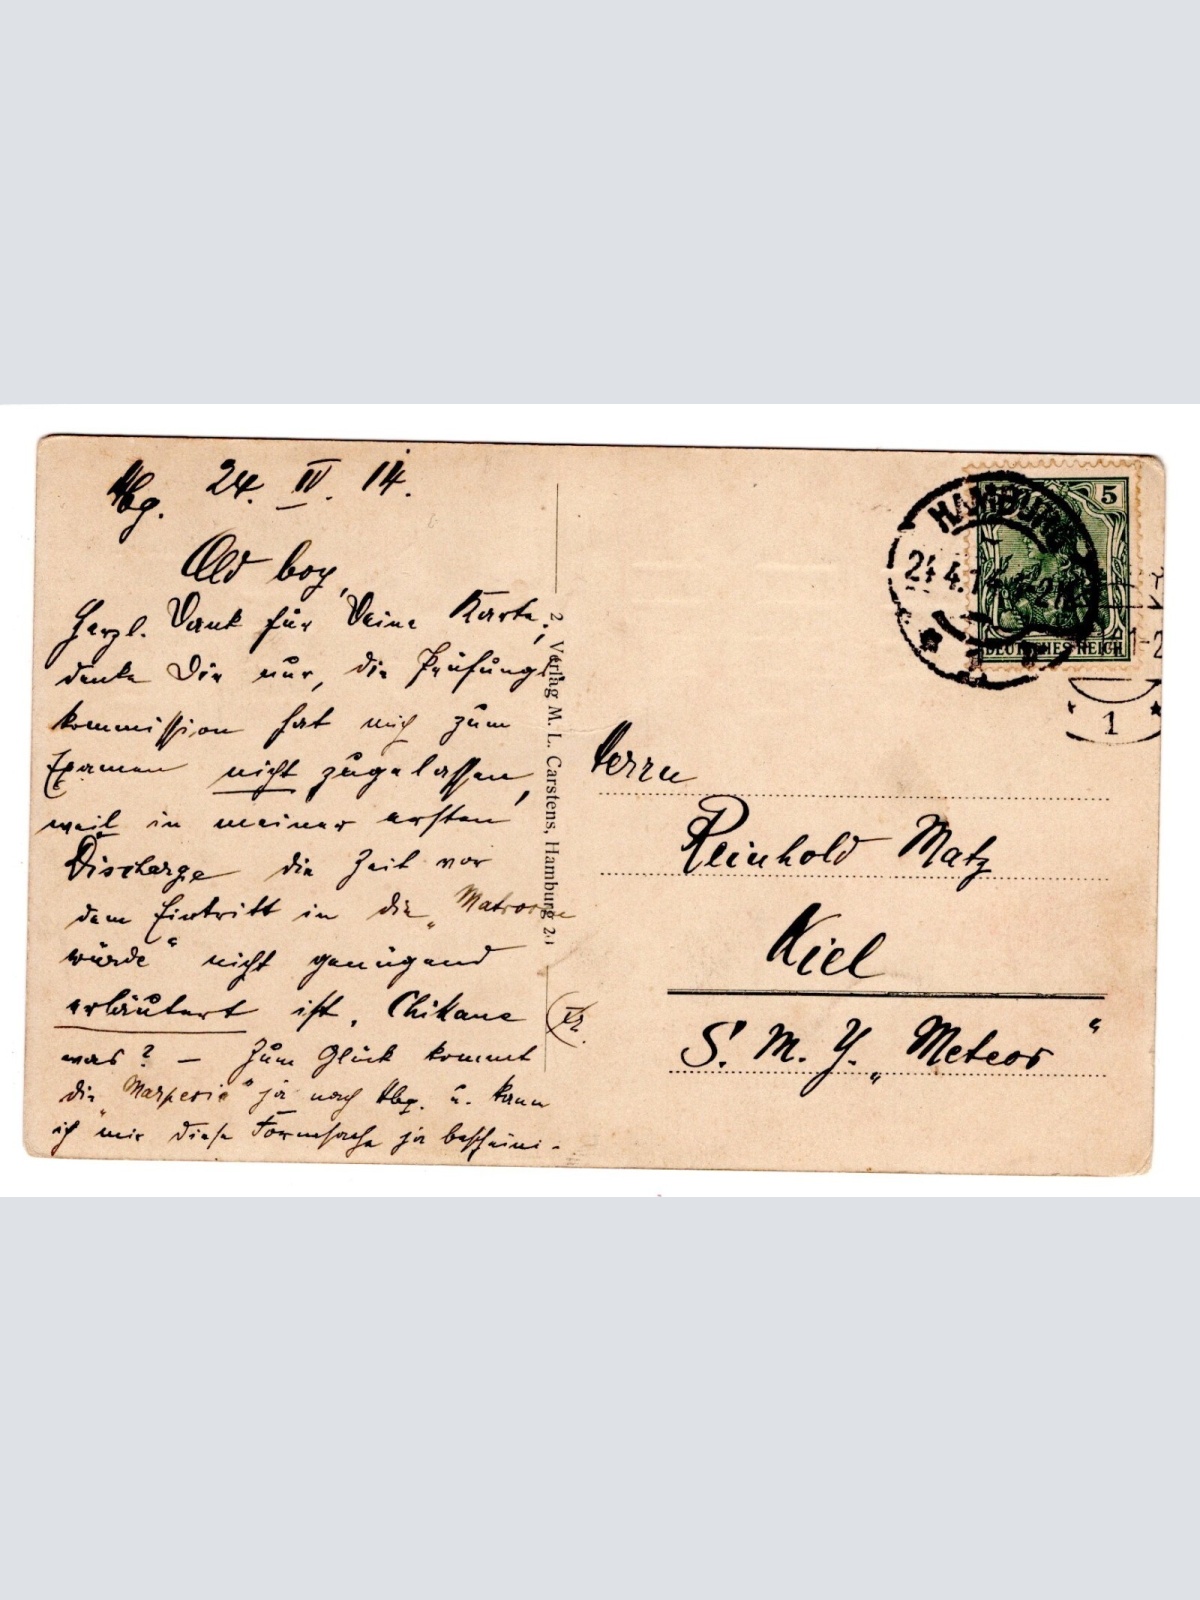 Hbg. 24. IV. 14.
Old boy,
Herzl. Dank für Deine Karte,
denke Dir nur, die Prüfungs
kommission hat mich zum
Examen nicht zugelassen,
weil in meiner ersten
Discharge die Zeit vor
dem Eintritt in die „Matrosen
würde“ nicht genügend
erläutert ist. Chikane
was? – Zum Glück kommt
die „Marpesia“ ja nach Hbg. u. kann
ich mir diese Formsache ja bescheini-
2. Verlag M. L. Carstens, Hamburg 21
HAMBURG
24.4.14
1
5
DEUTSCHES REICH
1-2
1
Herrn
Reinhold Matz
Kiel
S. M. Y. „Meteor“